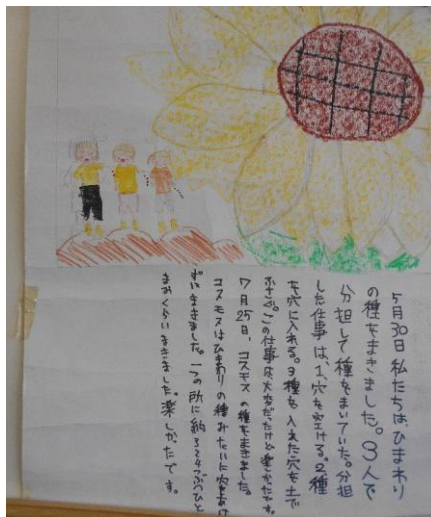 5月30日私たちは、ひまわり
の種をまきました。3人で
分担して種をまいていた。分担
した仕事は、1、穴を空ける。2、種
を穴に入れる。3種を入れた穴を土で
ふさぐ。この仕事は、大変だったけど楽しかったです。
7月25日、コスモスの種をまきました。
コスモスはひまわりの種みたいに穴をあけ
ずにまきました。一つの所に約3~4つぶづひと
まみくらいまきました。楽しかったです。